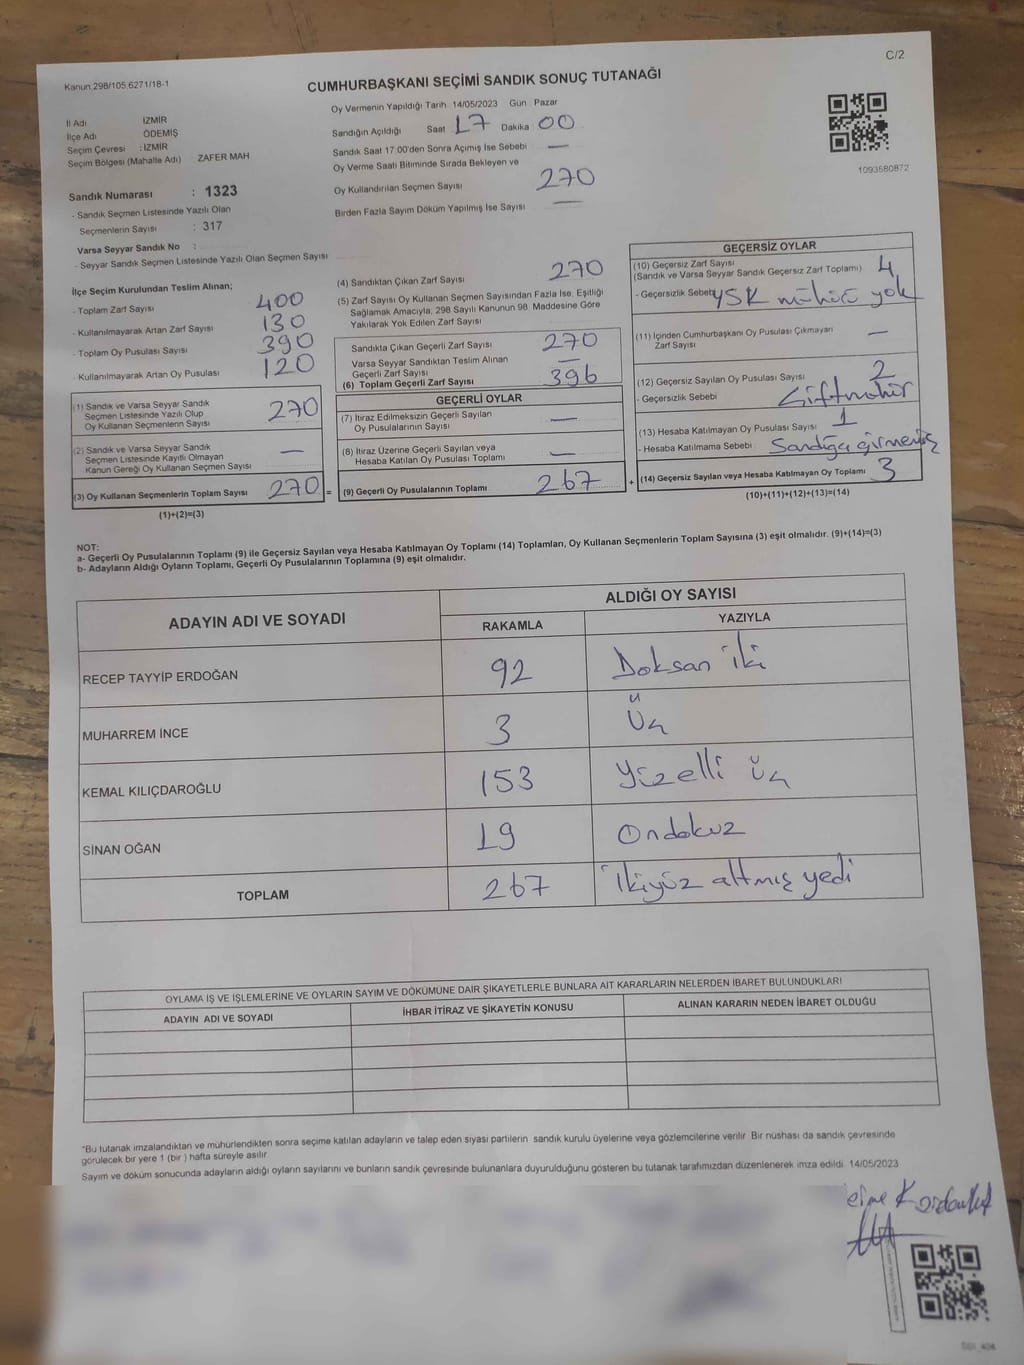 C/2
Kanun 298/105 6271/18-1
CUMHURBAŞKANI SEÇİMİ SANDIK SONUÇ TUTANAĞI
Oy Vermenin Yapıldığı Tarih 14/05/2023 Gün : Pazar
İl Adı İZMİR
İlçe Adı ÖDEMİŞ
Seçim Çevresi : İZMİR
Seçim Bölgesi (Mahalle Adı) ZAFER MAH
Sandık Numarası : 1323
- Sandık Seçmen Listesinde Yazılı Olan
Seçmenlerin Sayısı : 317
Varsa Seyyar Sandık No :
- Seyyar Sandık Seçmen Listesinde Yazılı Olan Seçmen Sayısı
Sandığın Açıldığı Saat 17 Dakika 00
Sandık Saat 17.00'den Sonra Açımış İse Sebebi —
Oy Verme Saati Bitiminde Sırada Bekleyen ve
Oy Kullandırılan Seçmen Sayısı 270
Birden Fazla Sayım Döküm Yapılmış İse Sayısı —
1093580872
İlçe Seçim Kurulundan Teslim Alınan;
- Toplam Zarf Sayısı 400
- Kullanılmayarak Artan Zarf Sayısı 130
- Toplam Oy Pusulası Sayısı 390
- Kullanılmayarak Artan Oy Pusulası 120
(1) Sandık ve Varsa Seyyar Sandık
Seçmen Listesinde Yazılı Olup
Oy Kullanan Seçmenlerin Sayısı 270
(2) Sandık ve Varsa Seyyar Sandık
Seçmen Listesinde Kayıtlı Olmayan
Kanun Gereği Oy Kullanan Seçmen Sayısı —
(3) Oy Kullanan Seçmenlerin Toplam Sayısı 270 =
(1)+(2)=(3)
(4) Sandıktan Çıkan Zarf Sayısı 270
(5) Zarf Sayısı Oy Kullanan Seçmen Sayısından Fazla İse, Eşitliği
Sağlamak Amacıyla, 298 Sayılı Kanunun 98. Maddesine Göre
Yakılarak Yok Edilen Zarf Sayısı
Sandıkta Çıkan Geçerli Zarf Sayısı 270
Varsa Seyyar Sandıktan Teslim Alınan
Geçerli Zarf Sayısı —
(6) Toplam Geçerli Zarf Sayısı 396
GEÇERLİ OYLAR
(7) İtiraz Edilmeksizin Geçerli Sayılan
Oy Pusulalarının Sayısı —
(8) İtiraz Üzerine Geçerli Sayılan veya
Hesaba Katılan Oy Pusulası Toplamı —
(9) Geçerli Oy Pusulalarının Toplamı 267 +
GEÇERSİZ OYLAR
(10) Geçersiz Zarf Sayısı
(Sandık ve Varsa Seyyar Sandık Geçersiz Zarf Toplamı) 4
- Geçersizlik Sebebi YSK mührü yok
(11) İçinden Cumhurbaşkanı Oy Pusulası Çıkmayan
Zarf Sayısı —
(12) Geçersiz Sayılan Oy Pusulası Sayısı 2
- Geçersizlik Sebebi Çiftmühür
(13) Hesaba Katılmayan Oy Pusulası Sayısı 1
- Hesaba Katılmama Sebebi Sandığa girmemiş
(14) Geçersiz Sayılan veya Hesaba Katılmayan Oy Toplamı 3
(10)+(11)+(12)+(13)=(14)
NOT:
a- Geçerli Oy Pusulalarının Toplamı (9) ile Geçersiz Sayılan veya Hesaba Katılmayan Oy Toplamı (14) Toplamları, Oy Kullanan Seçmenlerin Toplam Sayısına (3) eşit olmalıdır. (9)+(14)=(3)
b- Adayların Aldığı Oyların Toplamı, Geçerli Oy Pusulalarının Toplamına (9) eşit olmalıdır.
ADAYIN ADI VE SOYADI ALDIĞI OY SAYISI
RAKAMLA YAZIYLA
RECEP TAYYİP ERDOĞAN 92 Doksan iki
MUHARREM İNCE 3 Üç
KEMAL KILIÇDAROĞLU 153 Yüzelli üç
SİNAN OĞAN 19 Ondokuz
TOPLAM 267 ikiyüz altmış yedi
OYLAMA İŞ VE İŞLEMLERİNE VE OYLARIN SAYIM VE DÖKÜMÜNE DAİR ŞİKAYETLERLE BUNLARA AİT KARARLARIN NELERDEN İBARET BULUNDUKLARI
ADAYIN ADI VE SOYADI İHBAR İTİRAZ VE ŞİKAYETİN KONUSU ALINAN KARARIN NEDEN İBARET OLDUĞU
"Bu tutanak imzalandıktan ve mühürlendikten sonra seçime katılan adayların ve talep eden siyasi partilerin sandık kurulu üyelerine veya gözlemcilerine verilir. Bir nüshası da sandık çevresinde
görülecek bir yere 1 (bir ) hafta süreyle asılır.
Sayım ve döküm sonucunda adayların aldığı oyların sayılarını ve bunların sandık çevresinde bulunanlara duyurulduğunu gösteren bu tutanak tarafımızdan düzenlenerek imza edildi. 14/05/2023